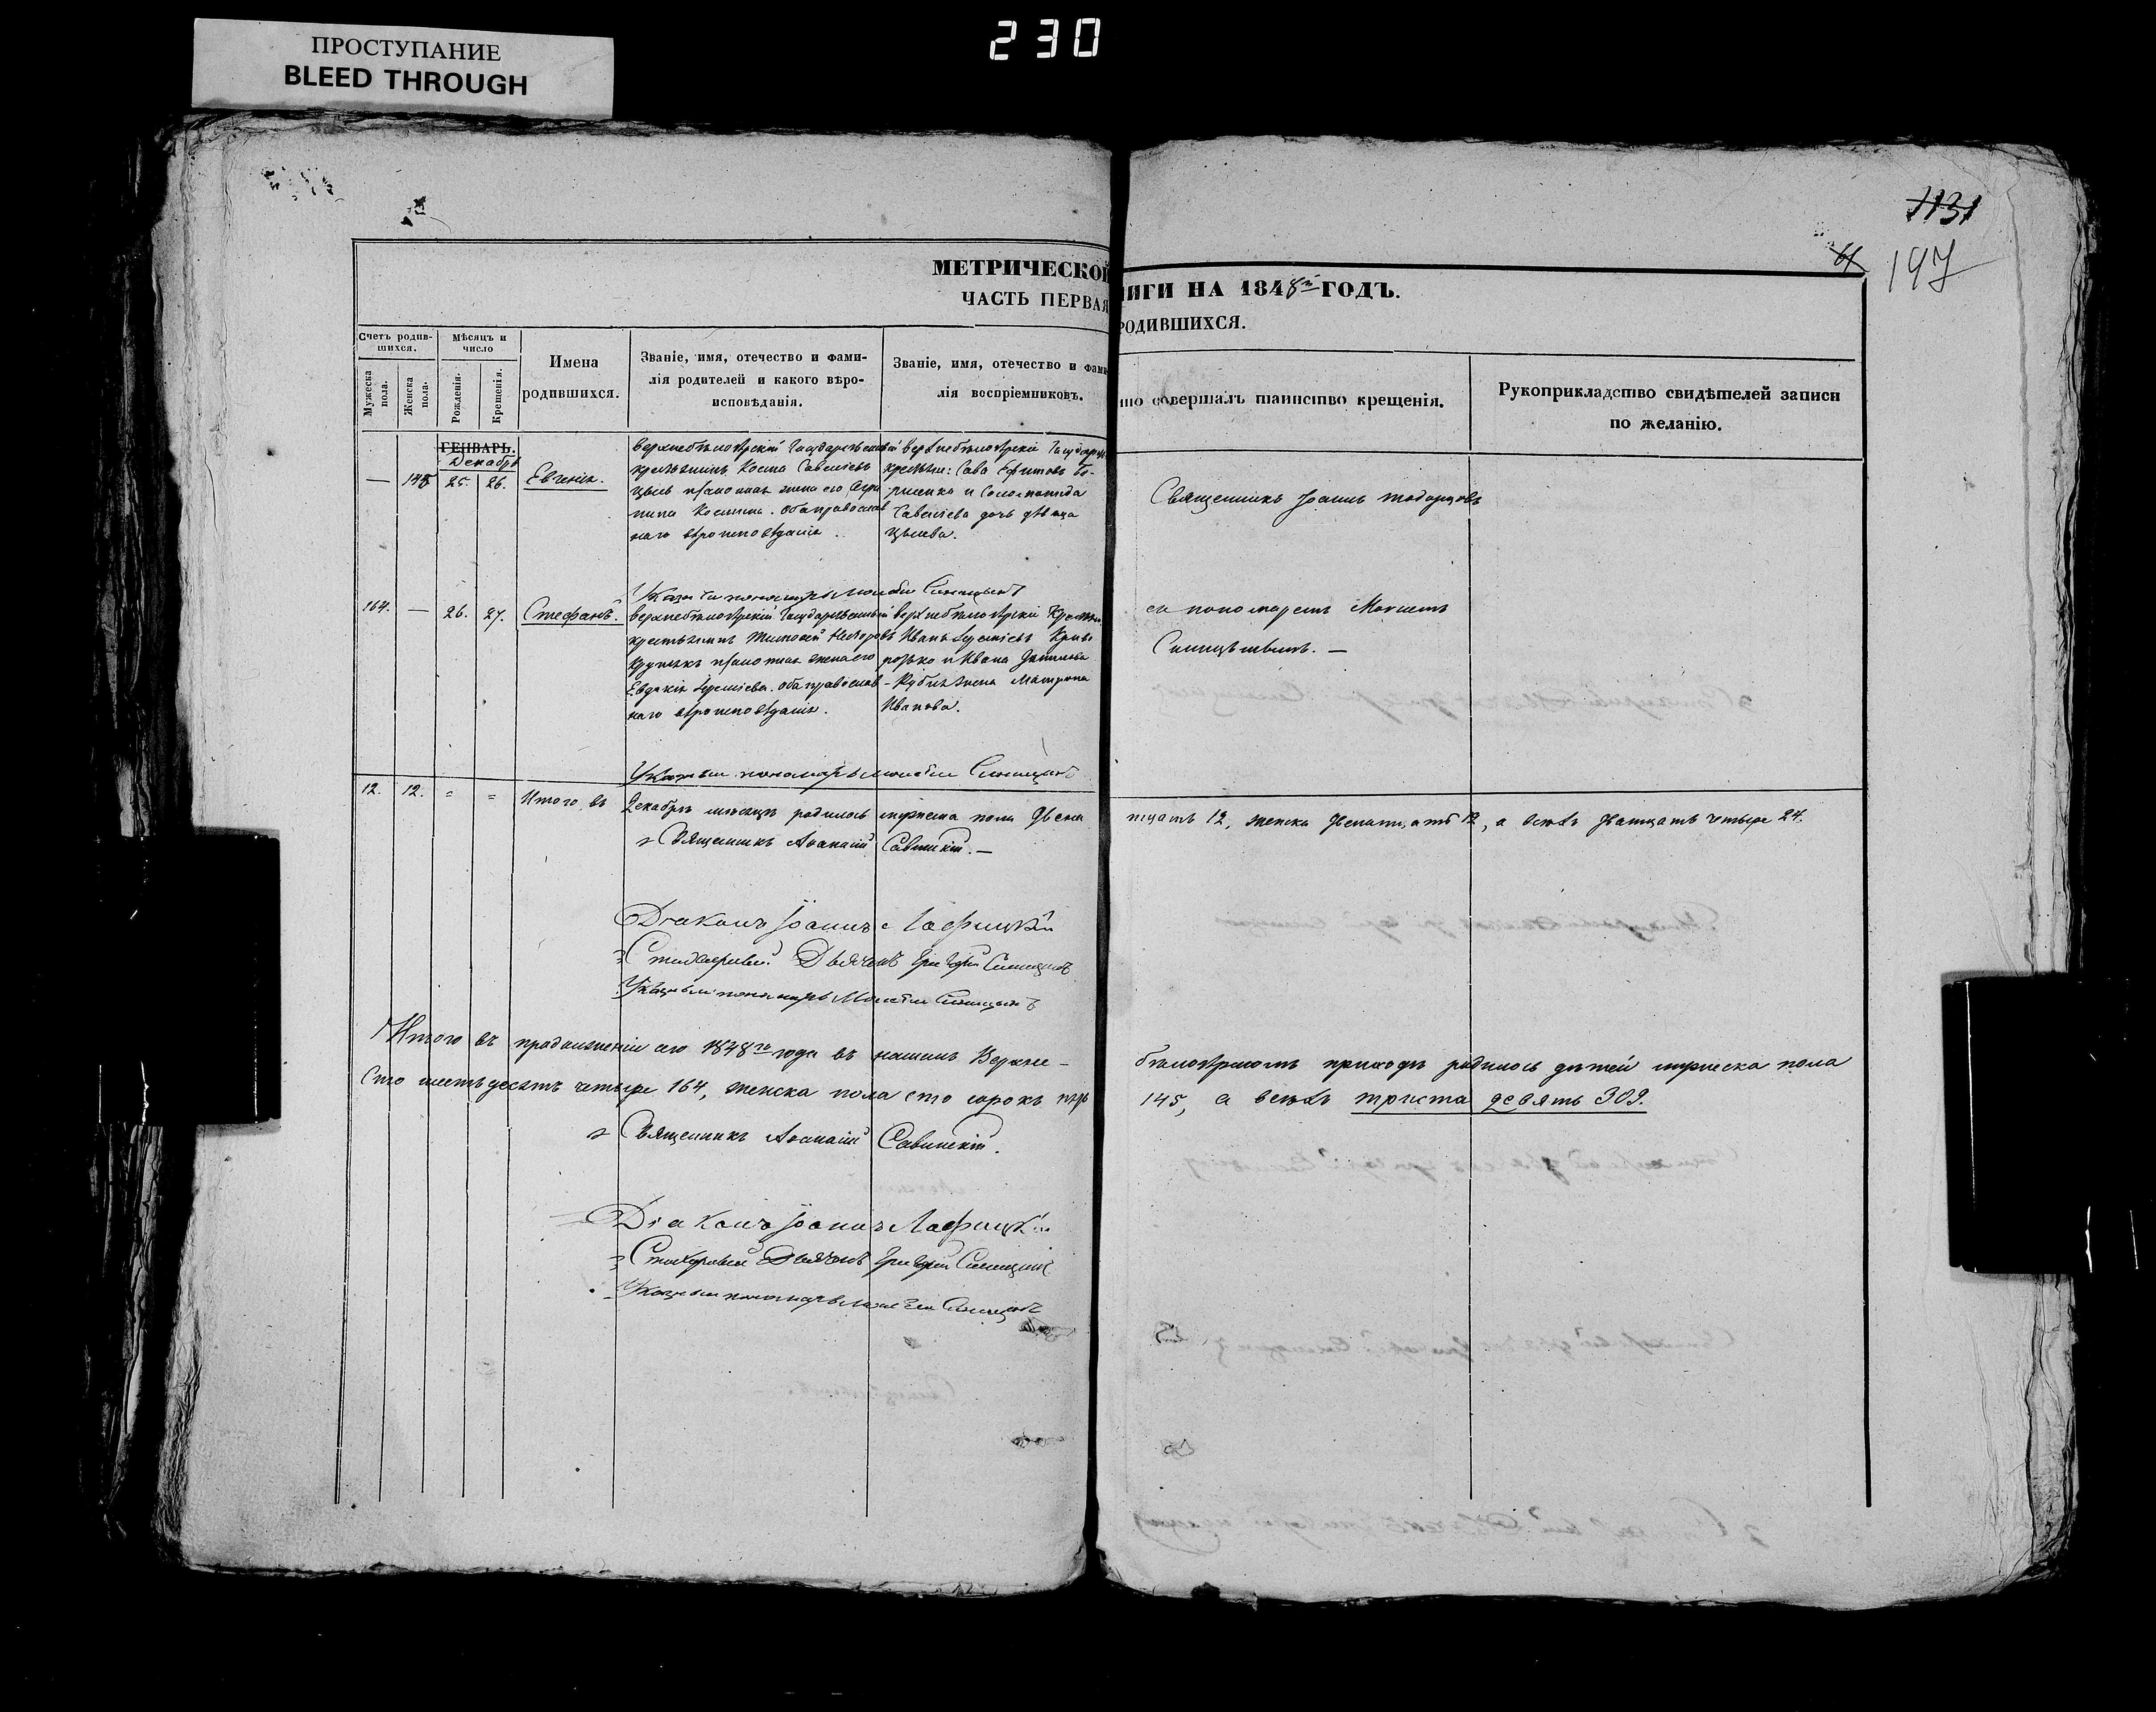 ПРОСТУПАНИЕ
BLEED THROUGH
230
1131
197
МЕТРИЧЕСКОЙ
ИГИ НА 1848й ГОДЪ.
ЧАСТЬ ПЕРВАЯ
РОДИВШИХСЯ.
Счетъ родив-
шихся.
Мѣсяцъ и
число
Мужеска
пола.
Женска
пола.
Рожденія.
Крещенія.
Имена
родившихся.
Званіе, имя, отечество и фами-
лія родителей и какого вѣро-
исповѣданія.
Званіе, имя, отечество и фами
лія воспріемниковъ.
то совершалъ таинство крещенія.
Рукоприкладство свидѣтелей записи
по желанію.
ГЕНВАРЬ.
Декабрь
— 145 25. 26. Евгенія.
верхнебѣлозѣрскій Государственный
крестьянинъ Косма Савеліевъ
законная жена его
Космина. оба православ
наго вѣроисповѣданія.
верхнебѣлозѣрскіе Государ
крестьяне: Сава Ефимовъ Бо-
риенко и Соломонида
Савеліева дочь дѣвица
Священникъ Іоаннъ
Указный пономарь Моисей Синицынъ
164. — 26. 27. Стефанъ.
верхнебѣлозѣрскій Государственный
крестьянинъ Тимофей
законная жена его
Евдокія Іереміева. оба православ
наго вѣроисповѣданія.
верхнебѣлозѣрскіе Крестьян.
Иванъ Іереміевъ Криво
и Ивана Данилова
жена Матрона
Иванова.
съ пономаремъ Моисеемъ
Синицынымъ. —
Указный пономарь Моисей Синицынъ
12. 12. = = Итого въ Декабрѣ мѣсяцѣ родилось мужеска пола двена
тцать 12, женска двенатцать 12, а всѣхъ дватцать четыре 24.
Священникъ Аѳанасій Савинскій. —
Діаконъ Іоаннъ Лафицкій
Стихарный Дьячекъ Григорій Синицынъ
Указный пономарь Моисей Синицынъ
Итого въ продолженіи сего 1848го года въ нашемъ Верхне-
бѣлозѣрскомъ приходѣ родилось дѣтей мужеска пола
Сто шестьдесятъ четыре 164, женска пола сто сорокъ пять
145, а всѣхъ триста девять 309.
Священникъ Аѳанасій Савинскій.
Діаконъ Іоаннъ Лафицкій
Стихарный Дьячекъ Григорій Синицынъ
Указный пономарь Моисей Синицынъ